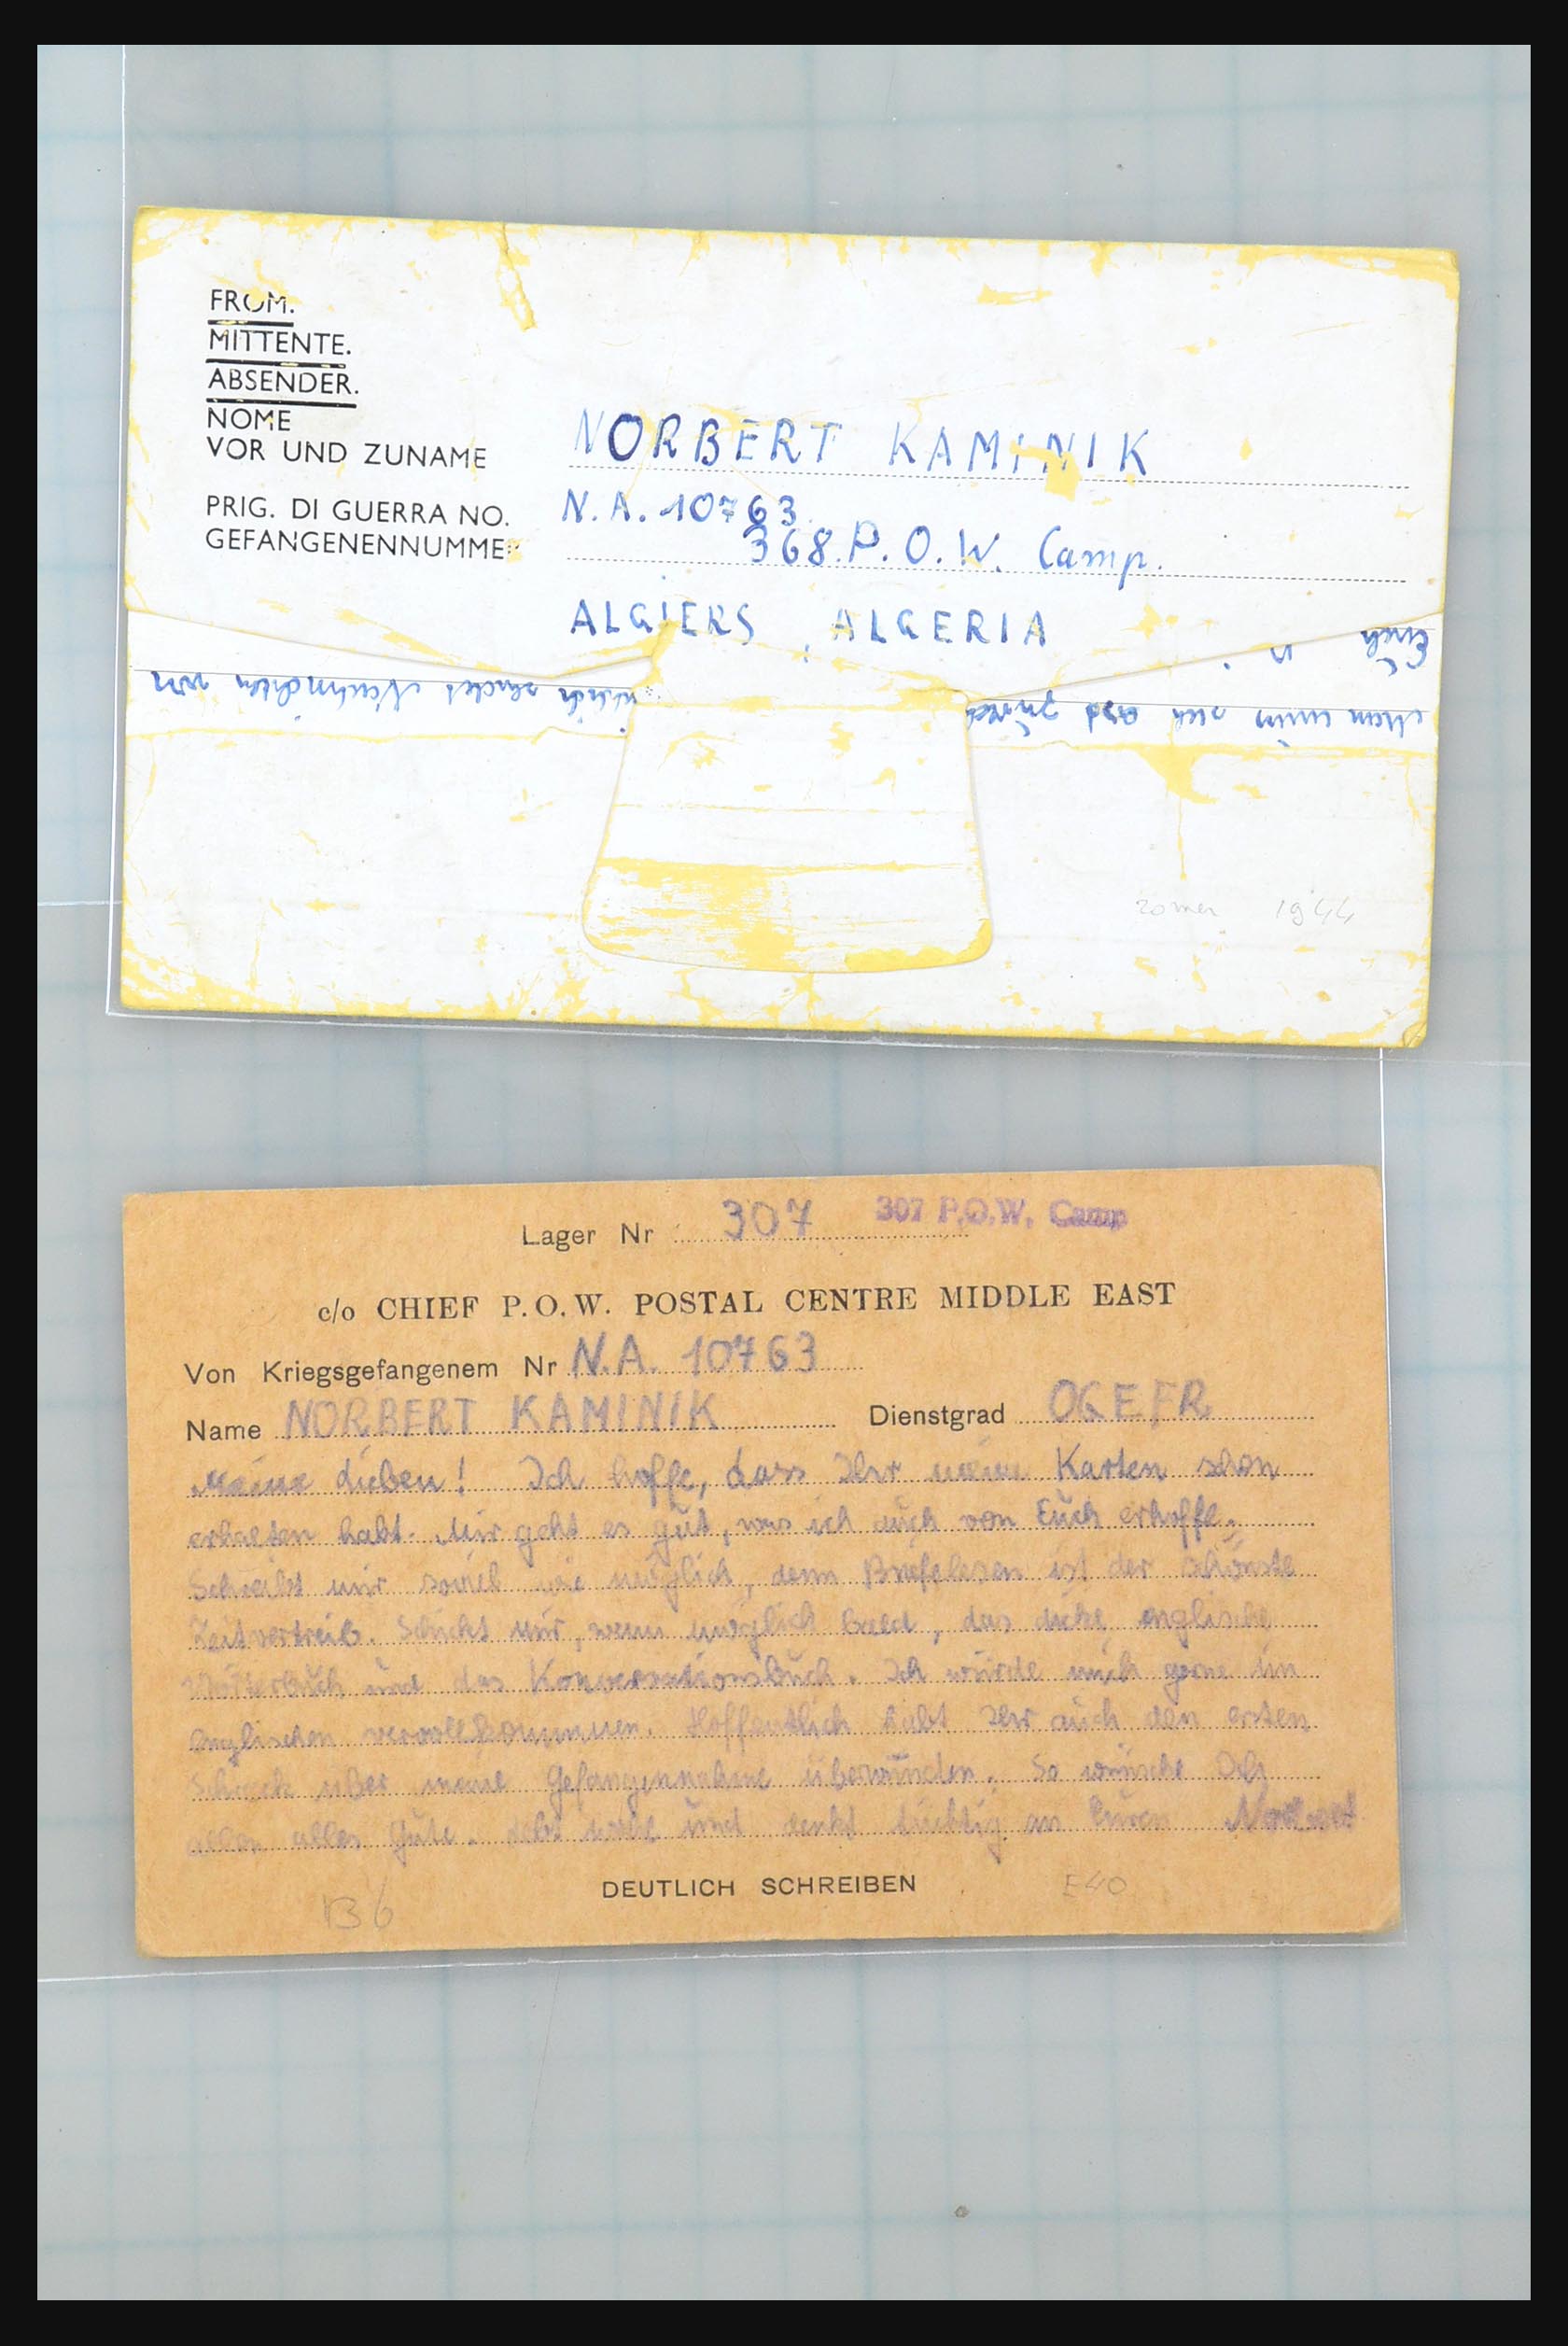 FROM.
MITTENTE.
ABSENDER.
NOME
VOR UND ZUNAME NORBERT KAMINIK
PRIG. DI GUERRA NO. N.A. 10763
GEFANGENENNUMMER 368. P.O.W. Camp.
ALGIERS, ALGERIA
Euch
sendet Nachrichten von
man nun sich
20 mer 1944
Lager Nr 307 307 P.O.W. Camp
c/o CHIEF P.O.W. POSTAL CENTRE MIDDLE EAST
Von Kriegsgefangenem Nr N.A. 10763
Name NORBERT KAMINIK Dienstgrad OGEFR
Meine Lieben! Ich hoffe, dass Ihr meine Karten schon
erhalten habt. Mir geht es gut, was ich auch von Euch erhoffe.
Schreibt mir soviel wie möglich, denn Briefelesen ist der schönste
Zeitvertreib. Schickt mir, wenn möglich bald, das dicke englische
Wörterbuch und das Konversationsbuch. Ich würde mich gerne im
englischen vervollkommnen. Hoffentlich habt Ihr auch den ersten
Schreck über meine Gefangennahme überwunden. So wünsche Ich
allen alles Gute. Lebt wohl und denkt tüchtig an Euren Norbert
DEUTLICH SCHREIBEN
B6 E40